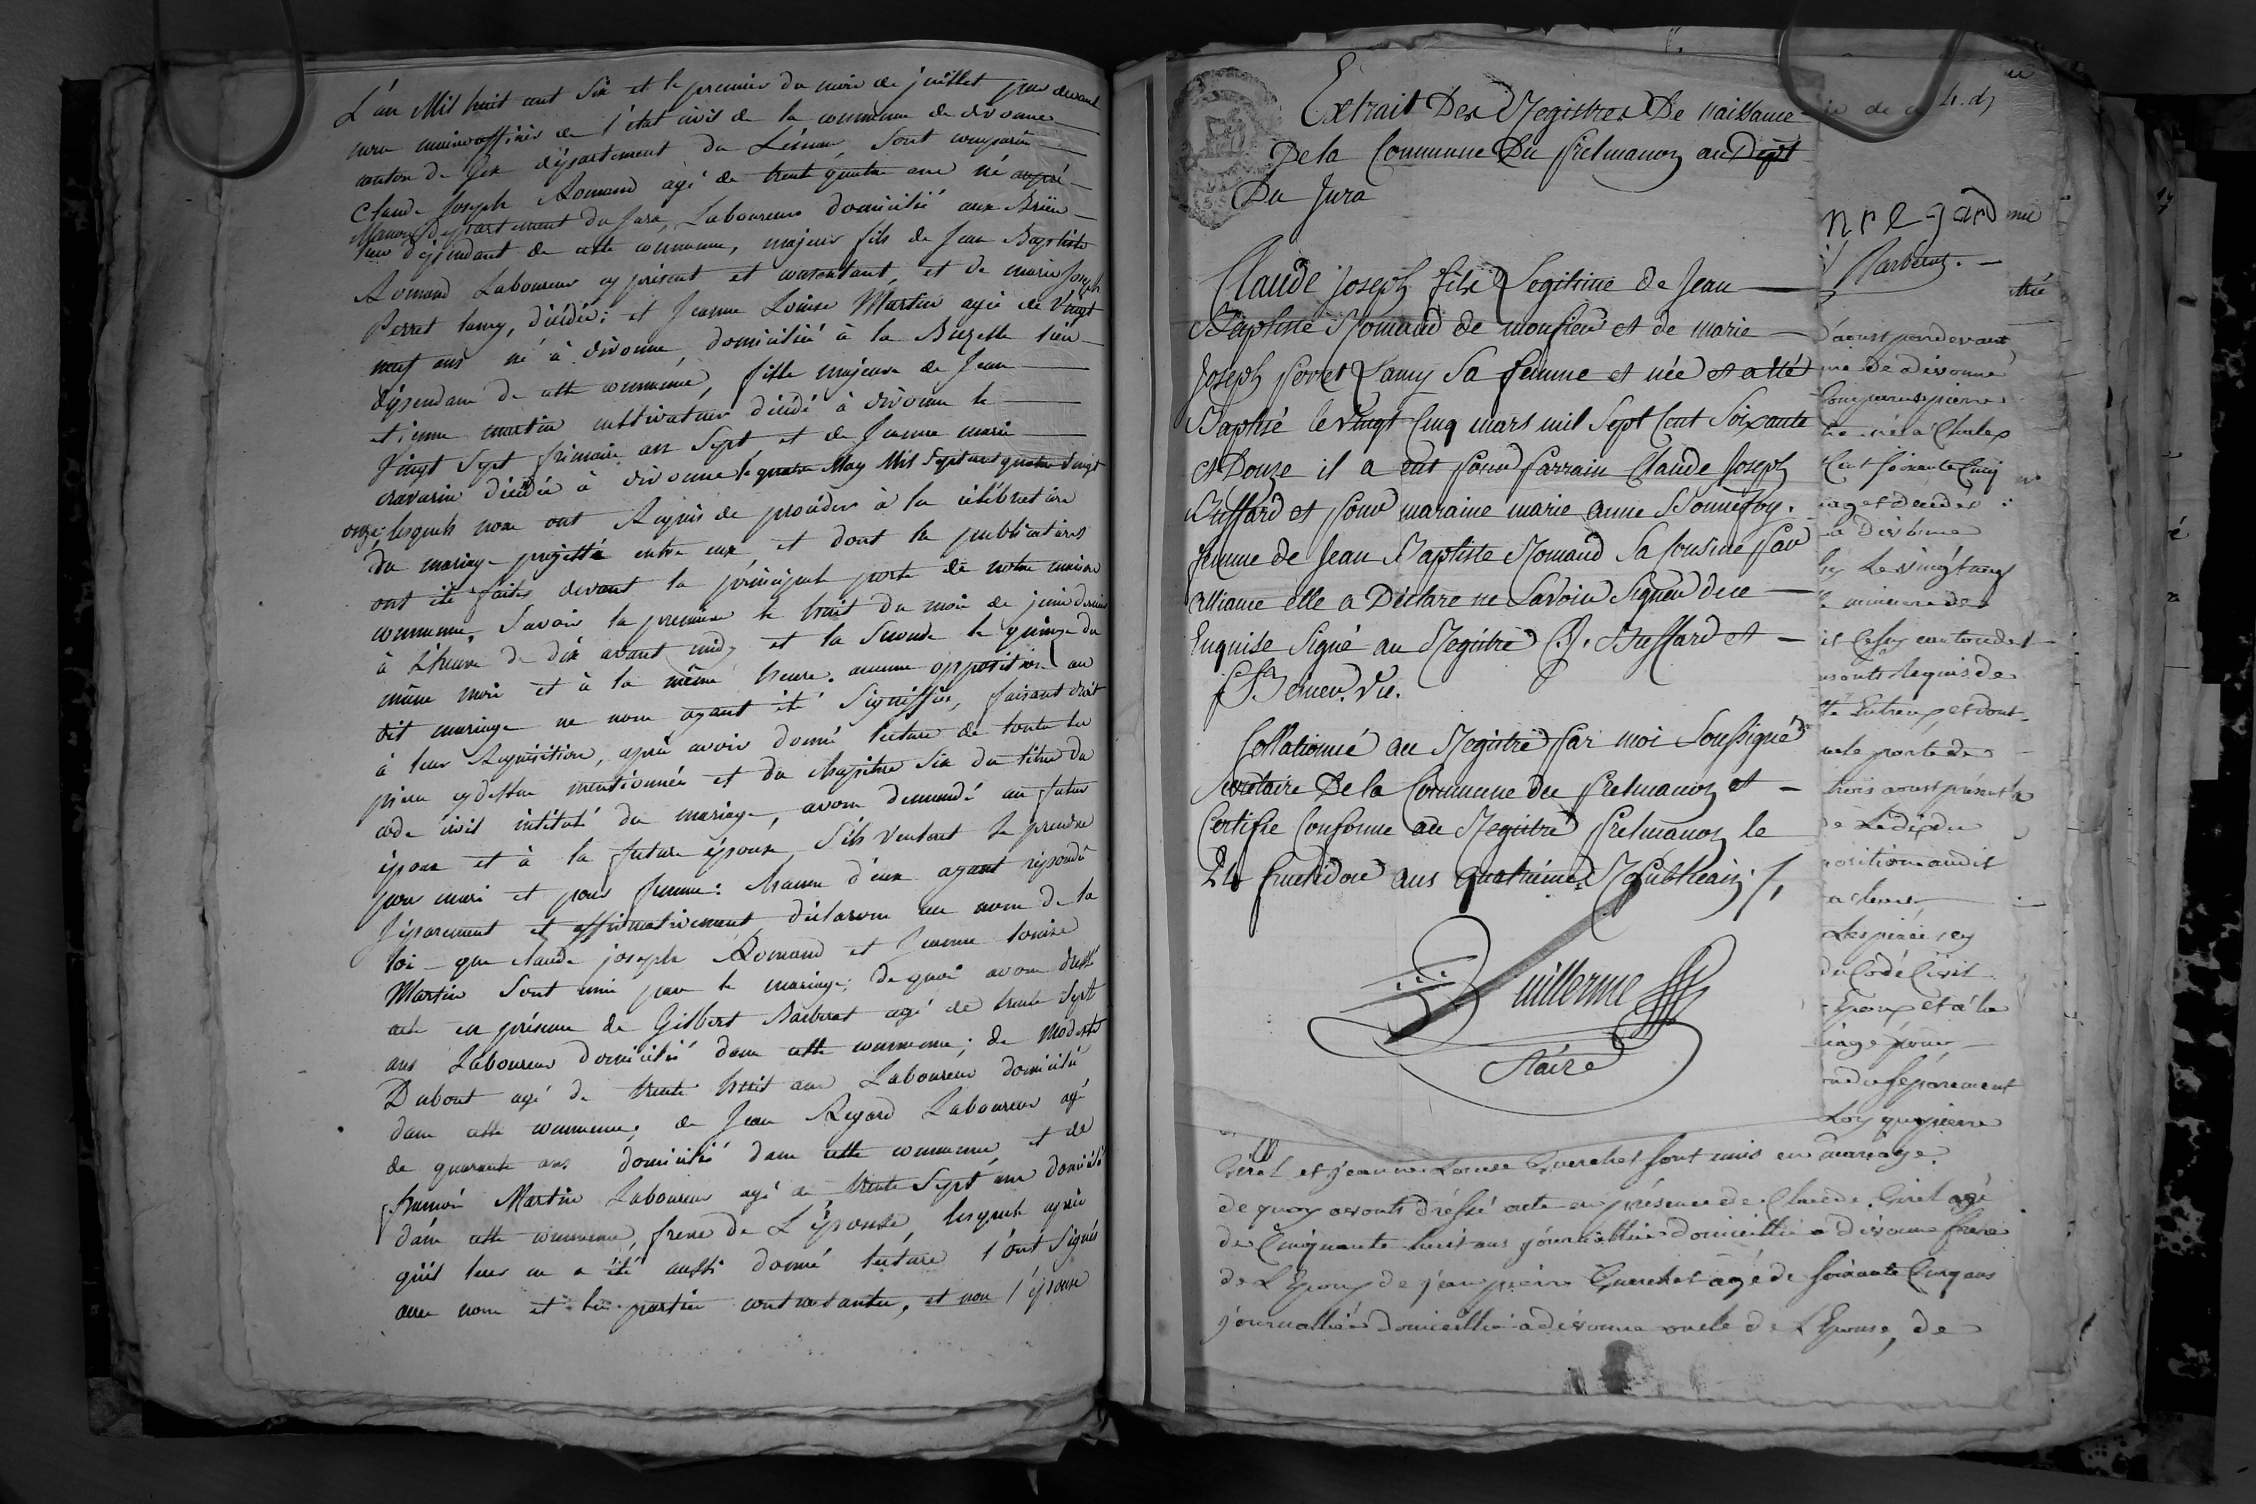 L'an Mil huit cent Six et le premier du mois de juillet par devant
nous maire officier de l'état civil de la commune de divonne
canton de Gex département du Léman, Sont comparus
Claude Joseph Romand agé de trente quatre ans né au pré
Manon département du Jura, Laboureur domicilié aux
lieu dépendant de cette commune, majeur fils de Jean Baptiste
Romand Laboureur cy présent et consentant, et de marie Joseph
Perret lamy, décédée; et Jeanne Louise Martin agée de Vingt
neuf ans né à divonne, domiciliée à la lieu
dépendant de cette commune, fille majeure de Jean
etienne martin cultivateur décédé à divonne le
Vingt Sept frimaire an Sept et de Jeanne marie
décédée à divonne le quatre May Mil Sept cent quatre Vingt
onze, lesquels nous ont Requis de procéder à la célébration
du mariage projetté entre eux et dont les publications
ont été faites devant la principale porte de notre maison
commune, Savoir la première le huit du mois de juin dernier
à L'heure de dix avant midy et la Seconde le quinze du
même mois et à la même heure. aucune opposition au
dit mariage ne nous ayant été Signiffiée, faisant droit
à leur Requisition, après avoir donné lecture de toutes les
pièces cy dessus mentionnées et du chapitre Six du titre du
code civil intitulé du mariage, avons demandé au futur
époux et à la future épouse S'ils veulent Se prendre
pour mari et pour femme: chacun d'eux ayant répondu
Séparement et affirmativement, déclarons au nom de la
loi que claude joseph Romand et Jeanne louise
Martin Sont unis par le mariage; de quoi avons dressé
acte en présence de Gilbert Barberat agé de trente Sept
ans Laboureur domicilié dans cette commune; de Modeste
Dubout agé de trente huit ans Laboureur domicilié
dans cette commune; de Jean Regard Laboureur agé
de quarante ans domicilié dans cette commune et de
Martin Laboureur agé de trente Sept ans domicilié
dans cette commune, frère de L'épouse, lesquels après
qu'il leur en a été aussi donné lecture l'ont Signés
avec nous et les parties contractantes, et non l'épouse
Extrait Des Registres De naissance
De la Commune Du Prelmanon au Dept
Du Jura
Claude joseph fils Legitime de Jean
Baptiste Romand de monsieur et de marie
Joseph perret Lamy Sa femme et née et a été
Baptisé le vingt Cinq mars mil Sept Cent Soixante
et Douze il a eut pour parrain Claude Joseph
Buffard et pour maraine marie anne Bonnefoy
femme de Jean Baptiste Romand Sa Cousine par
alliance elle a Déclaré ne Savoir Signer de ce
Enquise Signé au Registre C. J. Buffard et
vic.
Collationné au Registre par moi Soussigné
Secretaire De la Commune du prelmanon et
Certifie Conforme au Registre prelmanon le
24 fructidor ans quatrieme Republicain
Guillerme
Stáire
nregard
Barberat
d'aoust pardevant
de divonne
Comparus pierre
Cent soixante Cinq
à divonne
le vingt
mineure de
Requis de
Entreux et dont
porte de
trois aoust présent
position audit
Les piéces cy
du Code Civil
Epoux et à la
pour
Séparement
Loy que pierre
Girel et jeanne Louise Guerchet sont unis en mariage.
de quoy avons dréssé acte en présence de Claude Girel agé
de Cinquante huit ans journallier domicillié a divonne frere
de L'Epoux de jean pierre Guerchet agé de soixante Cinq ans
journallier domicillié a divonne oncle de L'Epouse, de